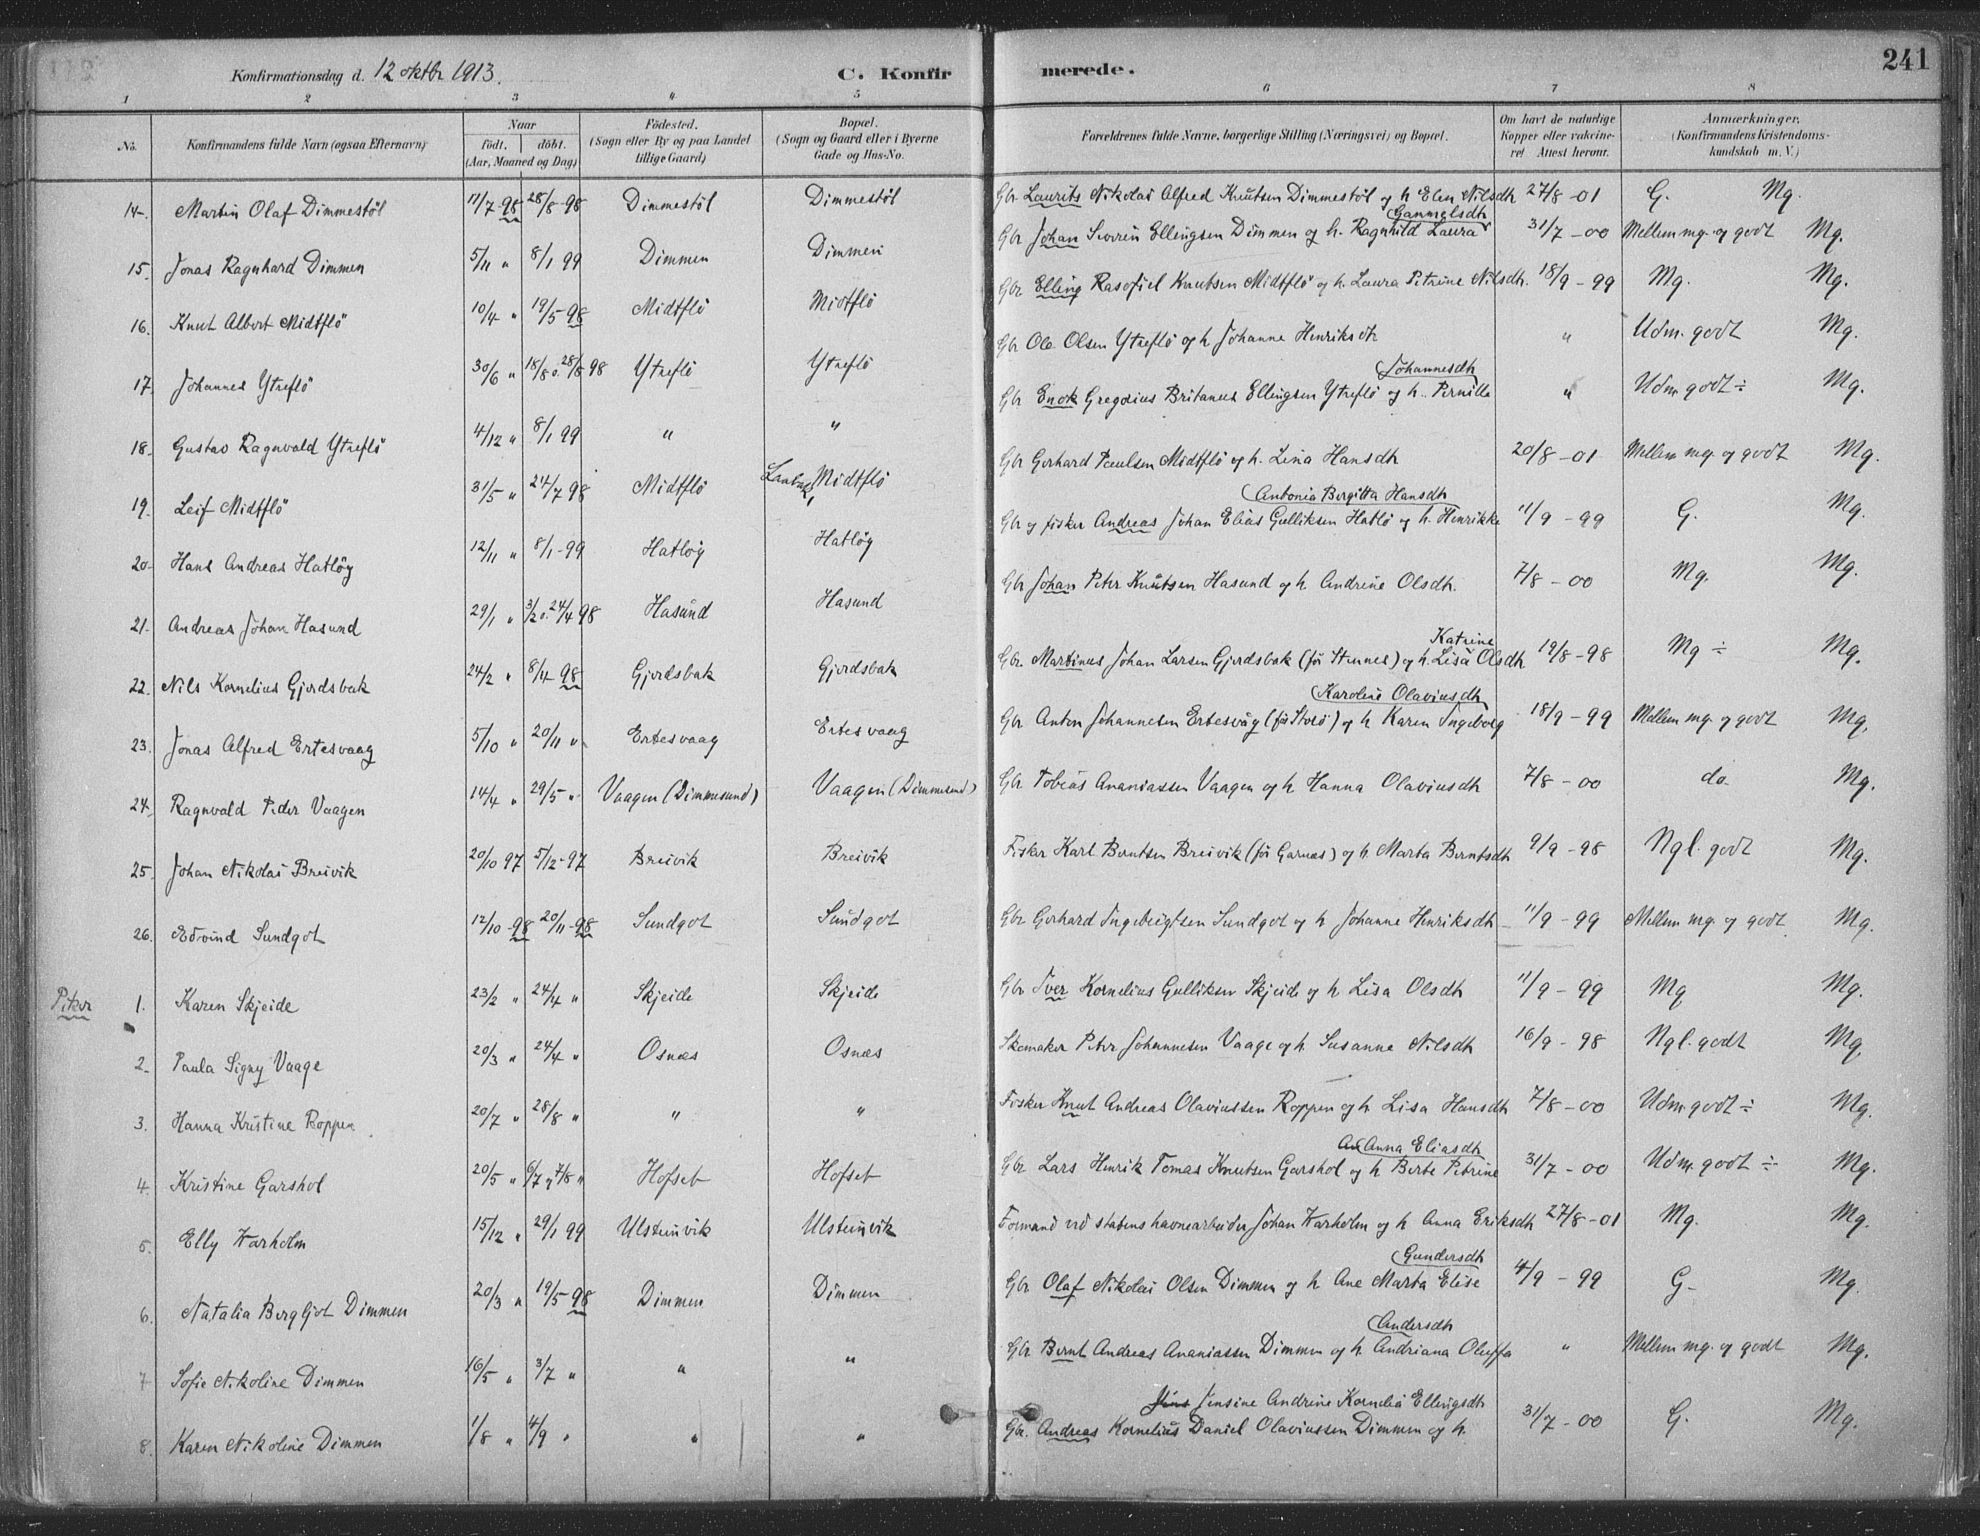 241
Konfirmationsdag d. 12 oktbr 1913.
C. Konfirmerede.
1 2 3 4 5 6 7 8
No. Konfirmandens fulde Navn (ogsaa Efternavn) Naar födt. döbt. (Aar, Maaned og Dag) Födested. (Sogn eller By og paa Landet tillige Gaard) Bopæl. (Sogn og Gaard eller i Byerne Gade og Hus-No. Forældrenes fulde Navne, borgerlige Stilling (Næringsvei) og Bopæl. Om havt de naturlige Kopper eller vakcineret Attest herom. Anmærkninger. (Konfirmandens Kristendomskundskab m. V.)
14. Martin Olaf Dimmestöl 11/7-98 28/8-98 Dimmestöl Dimmestöl Gbr Laurits Nikolai Alfred Knutsen Dimmestöl og h Elen Nilsdh 27/8-01 G. Mg.
15. Jonas Ragnhard Dimmen 5/11 " 8/1 99 Dimmen Dimmen Gbr Johan Severin Ellingsen Dimmen og h. Ragnhild Laura Gammelsdh 31/7-00 Mellem mg. og godt Mg.
16. Knut Albert Midtflö 10/4 " 19/5-98 Midtflö Midtflö Gbr Elling Rasofiel Knutsen Midtflö og h. Laura Petrine Nilsdh. 18/9-99 Mg. Mg.
17. Johannes Ytreflö 30/6 " 18/8 o. 28/8 98 Ytreflö Ytreflö Gbr Ole Olsen Ytreflö og h Johanne Henriksdh " Udm. godt Mg.
18. Gustav Ragnvald Ytreflö 4/12 " 8/1 99 " " Gbr Enok Gregorius Britanus Ellingsen Ytreflö og h. Pernille Johannesdh " Udm. godt ÷ Mg.
19. Leif Midtflö 31/5 " 24/7 98 Midtflö Midtflö Gbr Gerhard Paulsen Midtflö og h. Lina Hansdh 20/8-01 Mellem mg. og godt Mg.
20. Hans Andreas Hatlöy 12/11 " 8/1-99 Hatlöy Hatlöy Gbr og fisker Andreas Johan Elias Gulliksen Hatlö og h. Henrikke Antonia Bergitta Hansdh 11/9-99 G. Mg.
21. Andreas Johan Hasund 29/1 " 3/2 o. 24/4 98 Hasund Hasund Gbr Johan Peter Knutsen Hasund og h Andrine Olsdh. 7/8-00 Mg. Mg.
22. Nils Kornelius Gjerdsbak 24/2 " 8/4 98 Gjerdsbak Gjerdsbak Gbr. Martinus Johan Larsen Gjerdsbak (för Stennes) og h. Lisa Katrine Olsdh 19/8-98 Mg ÷ Mg.
23. Jonas Alfred Ertesvaag 5/10 " 20/11 " Ertesvaag Ertesvaag Gbr Anton Johannesen Ertesvåg (för Storö) og h Karen Ingeborg Karoline Olaviusdh 18/9-99 Mellem mg. og godt Mg.
24. Ragnvald Peder Vaagen 14/4 " 29/5 " Vaagen (Dimmesund) Vaagen (Dimmesund) Gbr Tobias Ananiassen Vaagen og h. Hanna Olaviusdh 7/8-00 do Mg.
25. Johan Nikolai Breivik 20/10 97 5/12-97 Breivik Breivik Fisker Karl Berntsen Breivik (för Garnæs) og h. Marta Berntsdh 9/9-98 Ngl. godt Mg.
26. Edvind Sundgot 12/10-98 20/11-98 Sundgot Sundgot Gbr Gerhard Ingebrigtsen Sundgot og h Johanne Henriksdh 11/9-99 Mellem mg. og godt Mg.
Piker 1. Karen Skjeide 23/2 " 24/4 " Skjeide Skjeide Gbr Iver Kornelius Gulliksen Skjeide og h Lisa Olsdh 11/9-99 Mg Mg.
2. Paula Signy Vaage 20/3 " 24/4 " Osnæs Osnæs Skomaker Peter Johannesen Vaage og h. Susanne Nilsdh 16/9-98 Ngl. godt Mg.
3. Hanna Kristine Roppen 20/7 " 28/8 " " " Fisker Knut Andreas Olaviussen Roppen og h Lisa Hansdh 7/8-00 Udm godt ÷ Mg.
4. Kristine Garshol 20/5 " 6/7 og 7/8 " Hofset Hofset Gbr Lars Henrik Tomas Knutsen Garshol og h Berte Petrine Anna Eliasdh 31/7-00 Udm. godt ÷ Mg.
5. Elly Warholm 15/12 " 29/1 99 Ulsteinvik Ulsteinvik Formand ved statens havnearbeider Johan Warholm og h Anna Eriksdh 27/8-01 Mg. Mg.
6. Natalia Bergljot Dimmen 20/3 " 19/5-98 Dimmen Dimmen Gbr Olaf Nikolai Olsen Dimmen og h Ane Marta Elise Gundersdh 4/9-99 G- Mg.
7. Sofie Nikoline Dimmen 16/5 " 3/7 " " " Gbr Bernt Andreas Ananiassen Dimmen og h. Andriana Oluffa Andersdh " Mellem mg. og godt Mg.
8. Karen Nikoline Dimmen 1/8 " 4/9 " " " Gbr. Andreas Kornelius Daniel Olaviussen Dimmen og h. Jensine Andrine Kornelia Ellingsdh 31/7-00 G. Mg.